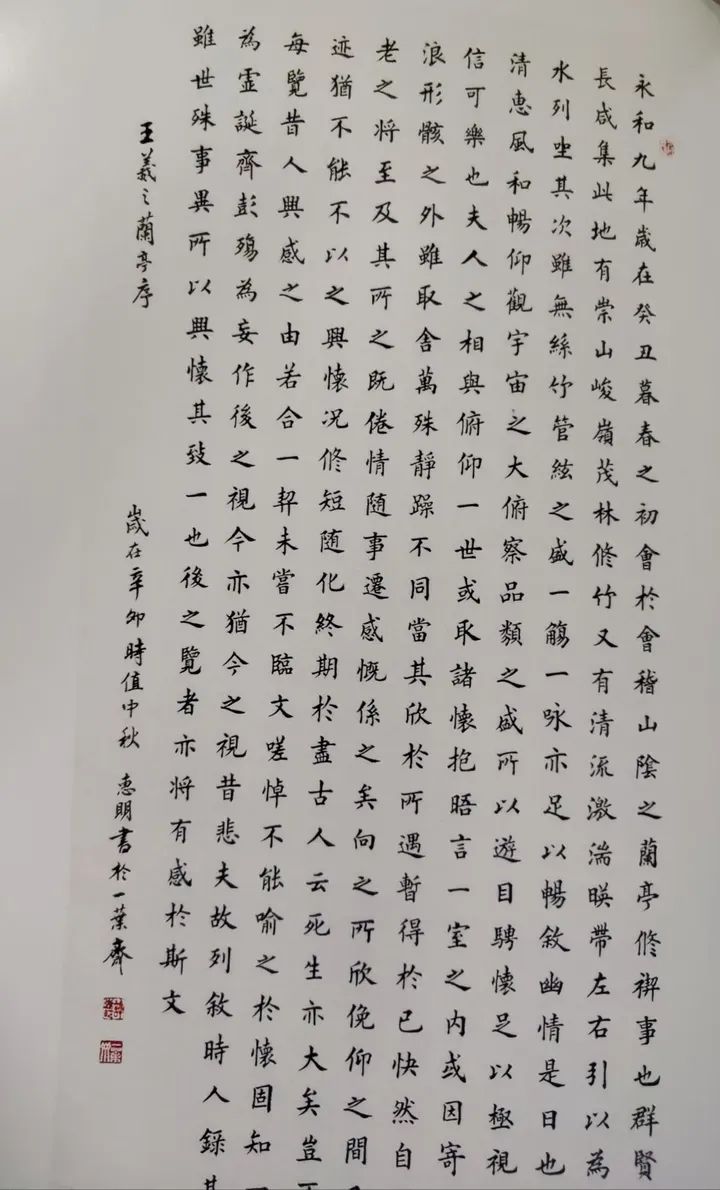 永和九年歲在癸丑暮春之初會於會稽山陰之蘭亭修禊事也群賢
長咸集此地有崇山峻嶺茂林修竹又有清流激湍暎帶左右引以為
水列坐其次雖無絲竹管絃之盛一觴一咏亦足以暢敘幽情是日也
清惠風和暢仰觀宇宙之大俯察品類之盛所以遊目騁懷足以極視
信可樂也夫人之相與俯仰一世或取諸懷抱晤言一室之内或因寄
浪形骸之外雖取舍萬殊靜躁不同當其欣於所遇暫得於己快然自
老之將至及其所之既倦情随事遷感慨係之矣向之所欣俛仰之間
迹猶不能不以之興懷况修短随化終期於盡古人云死生亦大矣豈
每覽昔人興感之由若合一契未嘗不臨文嗟悼不能喻之於懷固知
為霊誕齊彭殤為妄作後之視今亦猶今之視昔悲夫故列敘時人錄其
雖世殊事異所以興懷其致一也後之覽者亦将有感於斯文
王羲之蘭亭序
歲在辛卯時值中秋 惠明書於一葉齋